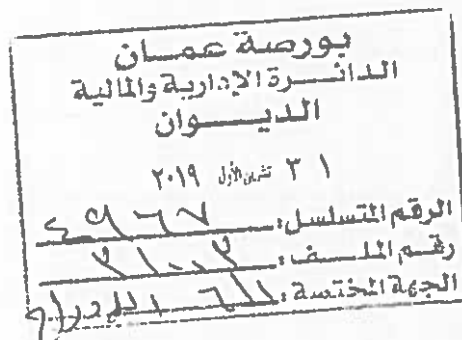 بورصة عمان
الدائرة الإدارية والمالية
الديوان
٣١ تشرين الأول ٢٠١٩
الرقم المتسلسل: ٤٩٦٧
رقم الملف:
الجهة المختصة: